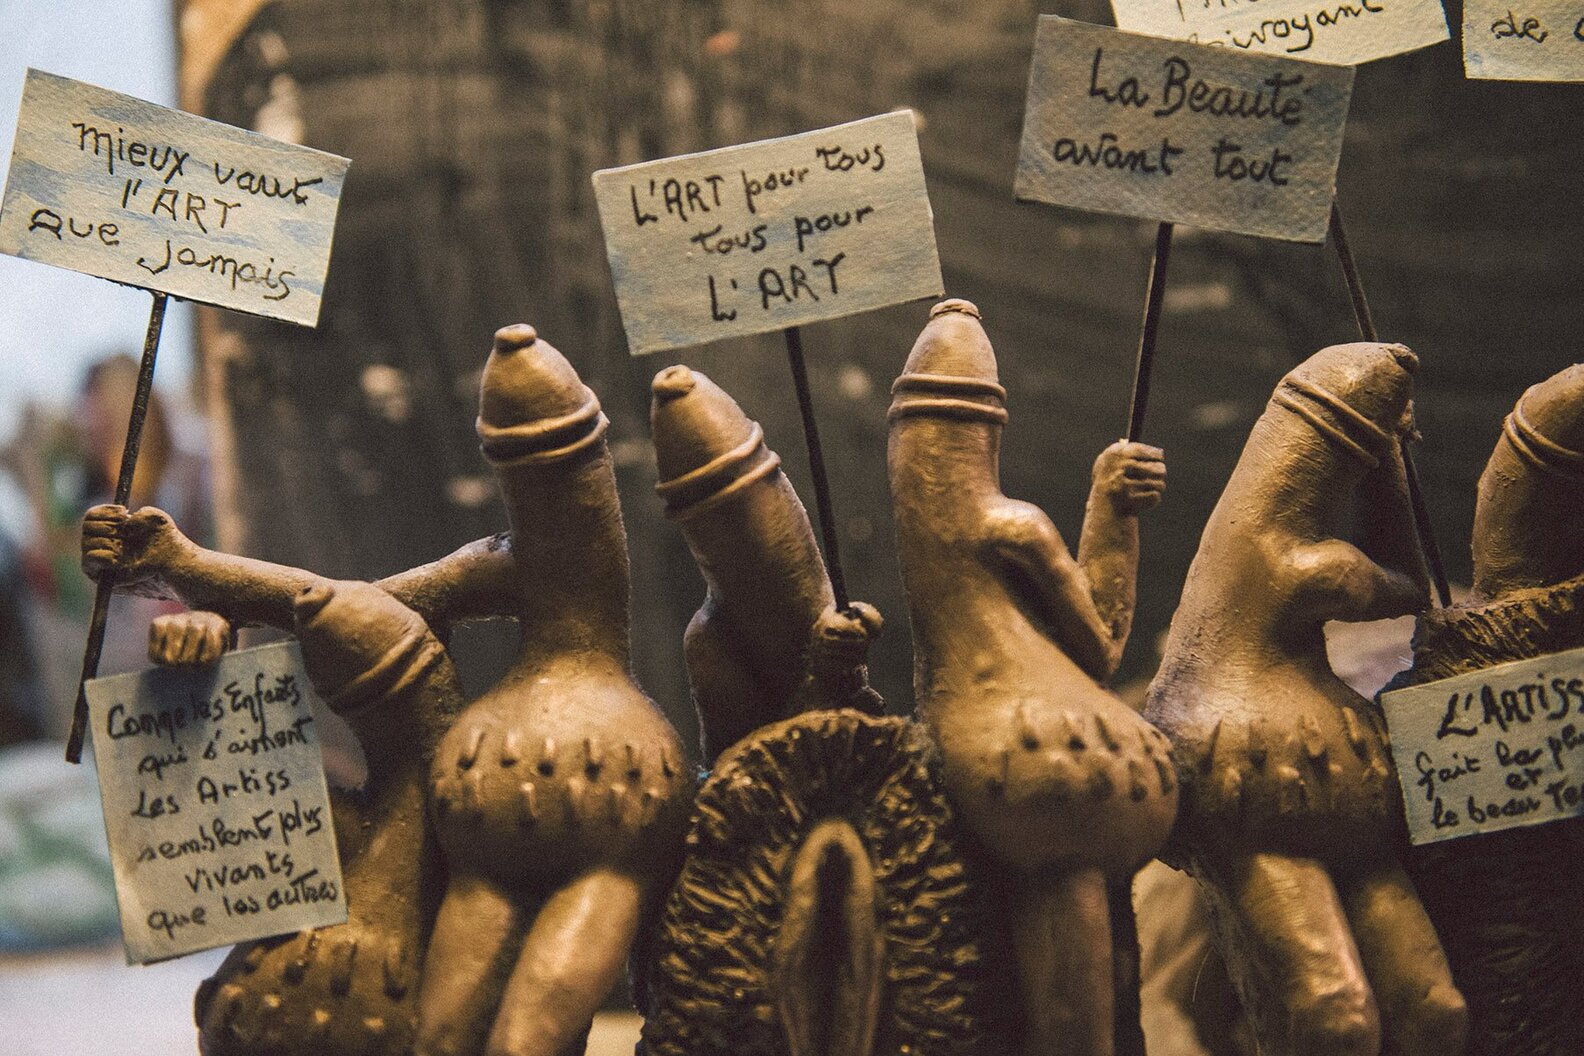 Mieux vaut
l'ART
que jamais
L'ART pour tous
tous pour
L'ART
ivoyant
La Beauté
avant tout
de
Comme les Enfants
qui s'aiment
Les Artiss
semblent plus
vivants
que les autres
L'ARTISS
fait
et
le beau